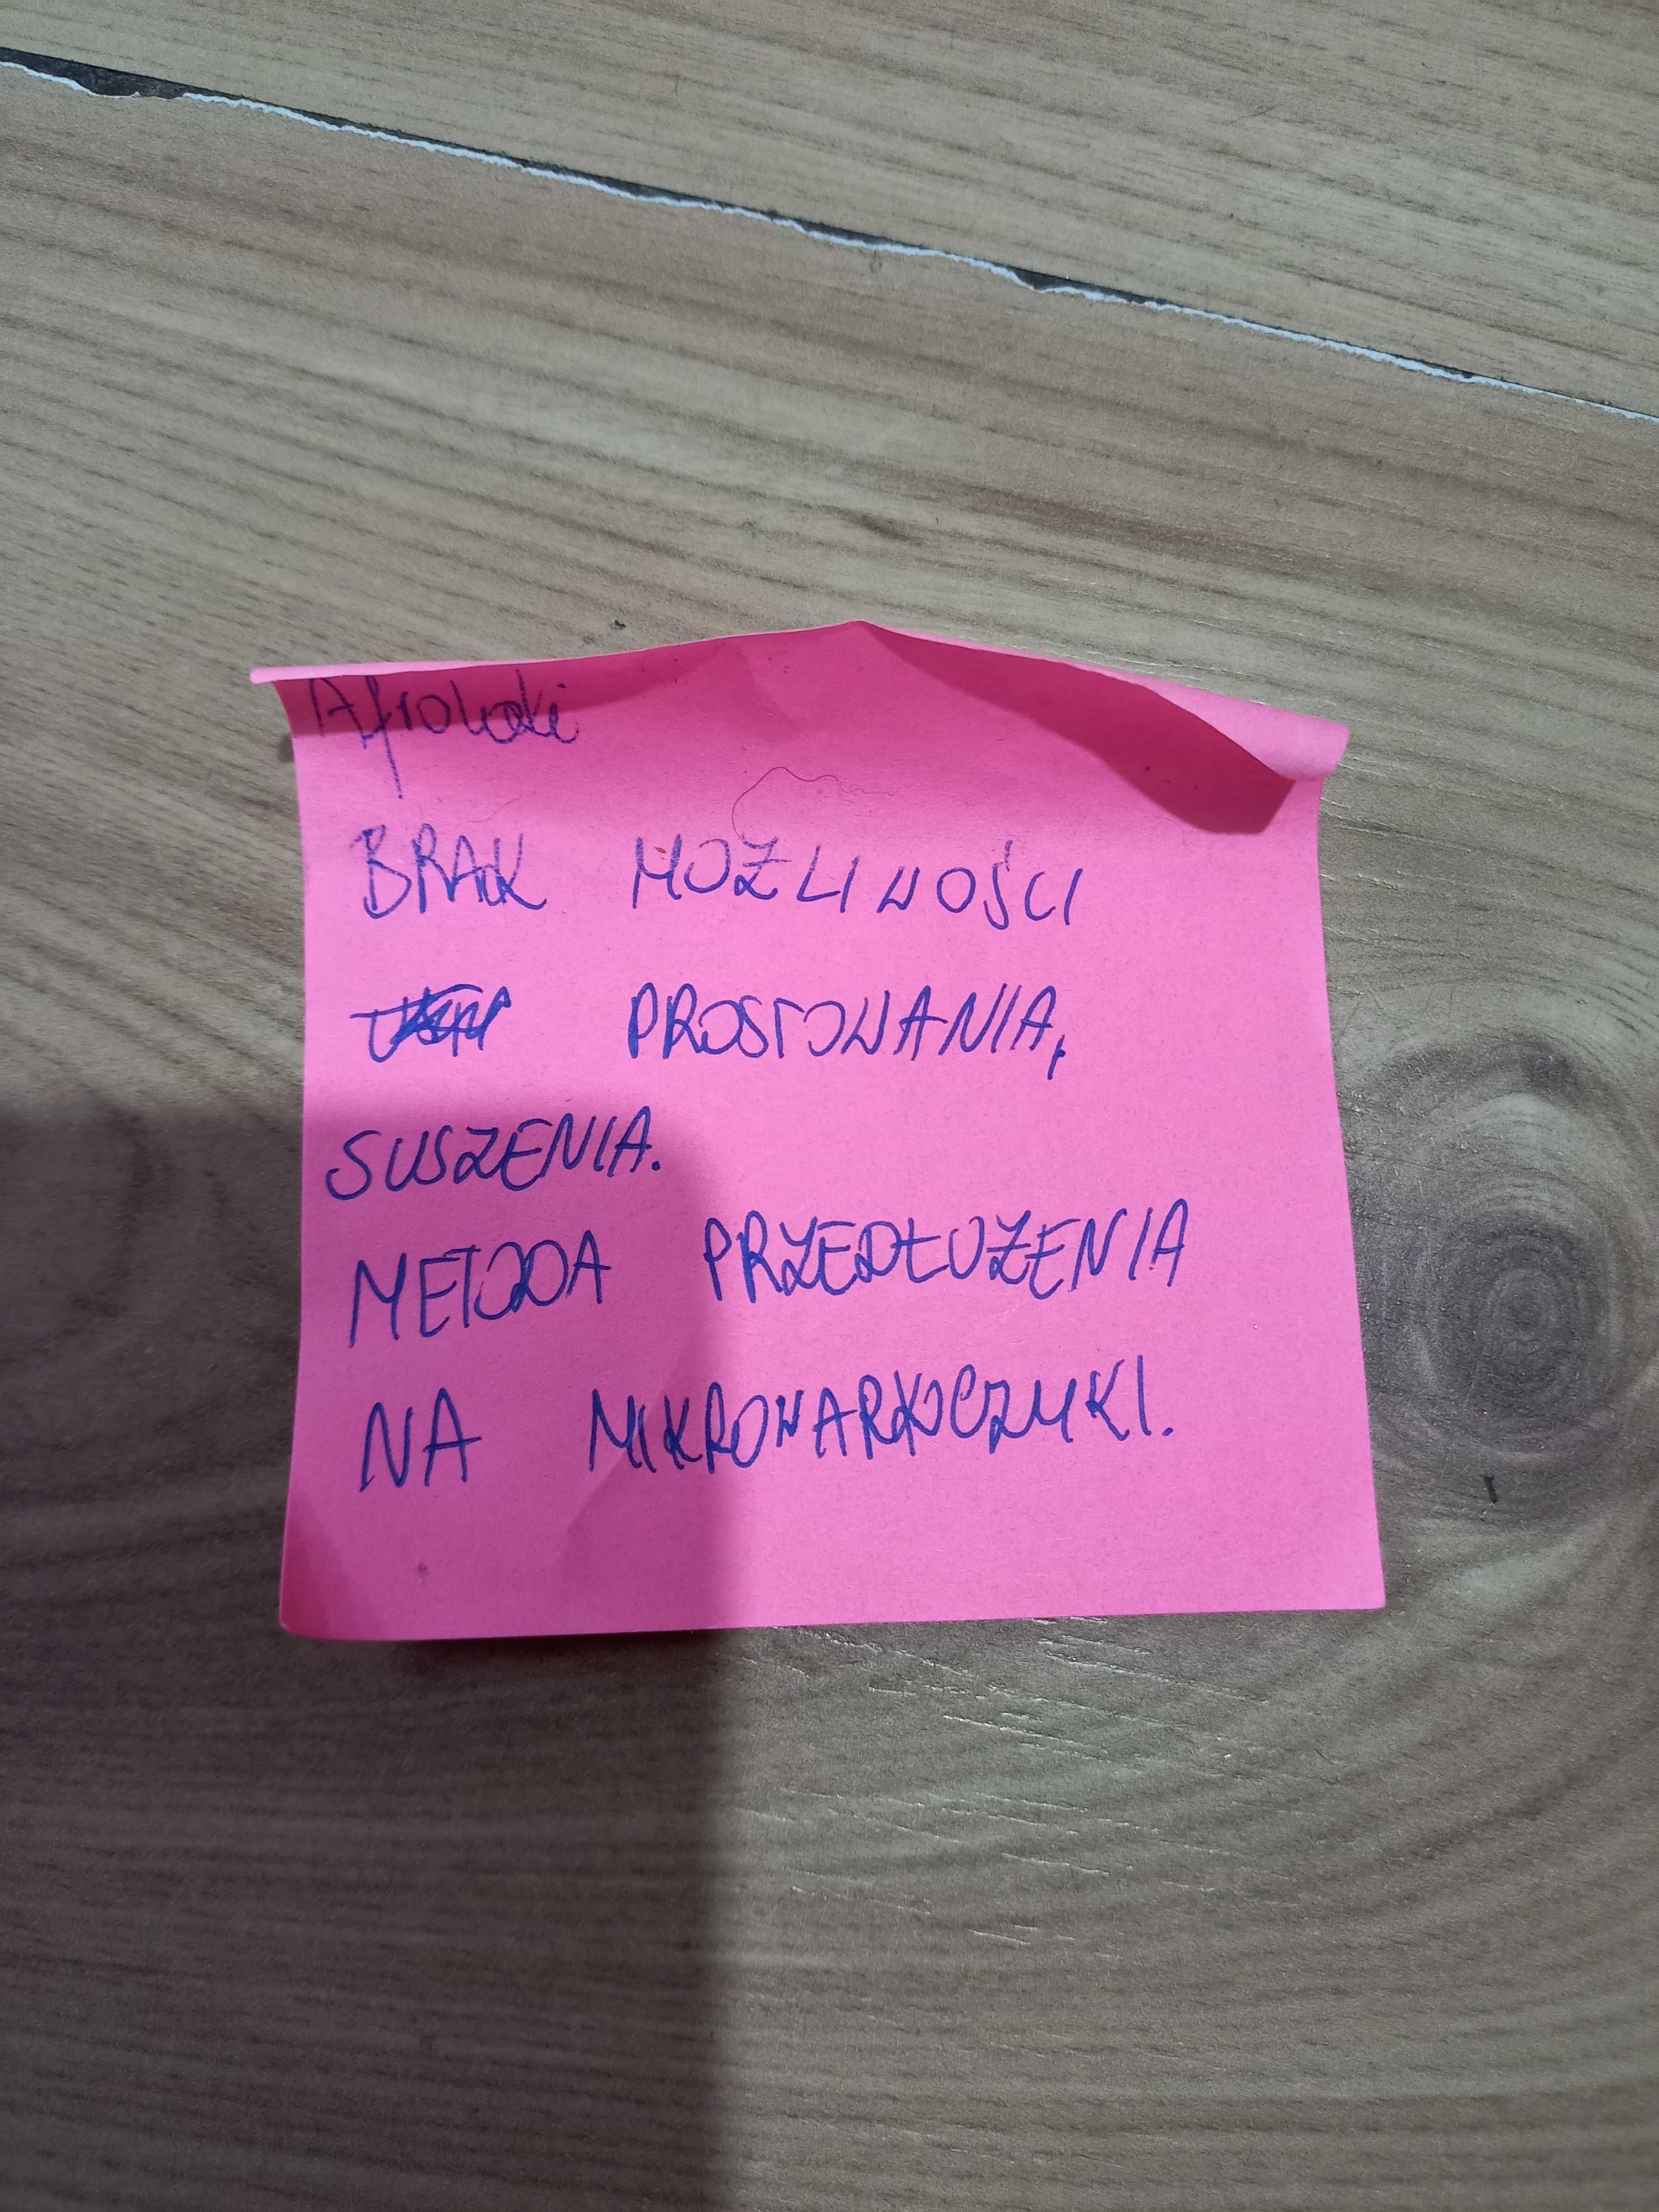 Afroloki
BRAK MOŻLIWOŚCI
PROSTOWANIA,
SUSZENIA.
METODA PRZEDŁUŻENIA
NA MIKROWARKOCZYKI.